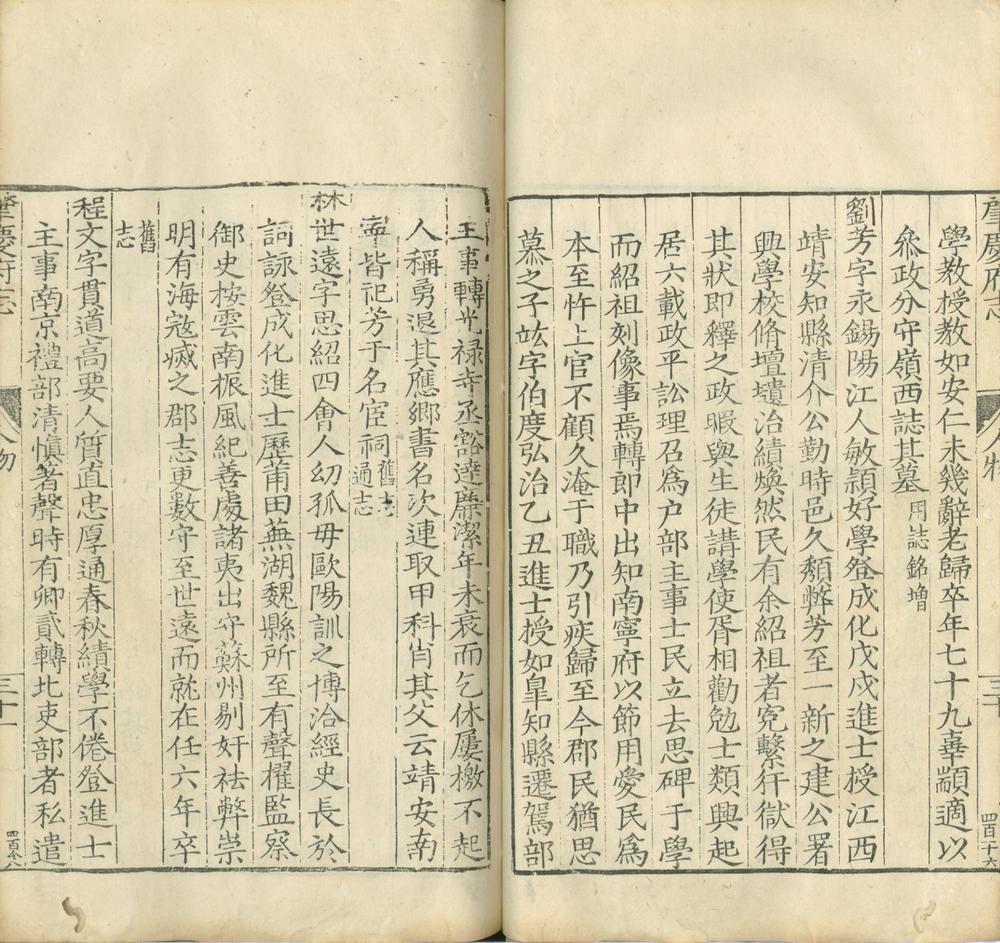 肇慶府志
人物
三十
四百十六
學教授教如安仁未幾辭老歸卒年七十九辜顓適以
叅政分守嶺西誌其墓周誌銘增
劉芳字永錫陽江人敏頴好學登成化戊戌進士授江西
靖安知縣清介公勤時邑久頽弊芳至一新之建公署
興學校脩壇壝治績煥然民有余紹祖者寃繫犴獄得
其狀即釋之政暇與生徒講學使胥相勸勉士類興起
居六載政平訟理召爲户部主事士民立去思碑于學
而紹祖刻像事焉轉郎中出知南寧府以節用愛民爲
本至忤上官不顧久淹于職乃引疾歸至今郡民猶思
慕之子竑字伯度弘治乙丑進士授如皐知縣遷駕部
主事轉光禄寺丞豁達廉潔年未衰而乞休屢檄不起
人稱勇退其應鄉書名次連取甲科肖其父云靖安南
寧皆祀芳于名宦祠舊志通志
林世遠字思紹四會人幼孤母歐陽訓之博洽經史長於
詞詠登成化進士歷莆田蕪湖魏縣所至有聲擢監察
御史按雲南振風紀善處諸夷出守蘇州剔奸祛弊崇
明有海寇滅之郡志更數守至世遠而就在任六年卒
舊志
程文字貫道高要人質直忠厚通春秋績學不倦登進士
主事南京禮部清愼著聲時有卿貳轉北吏部者私遣
肇慶府志
人物
三十一
四百令八